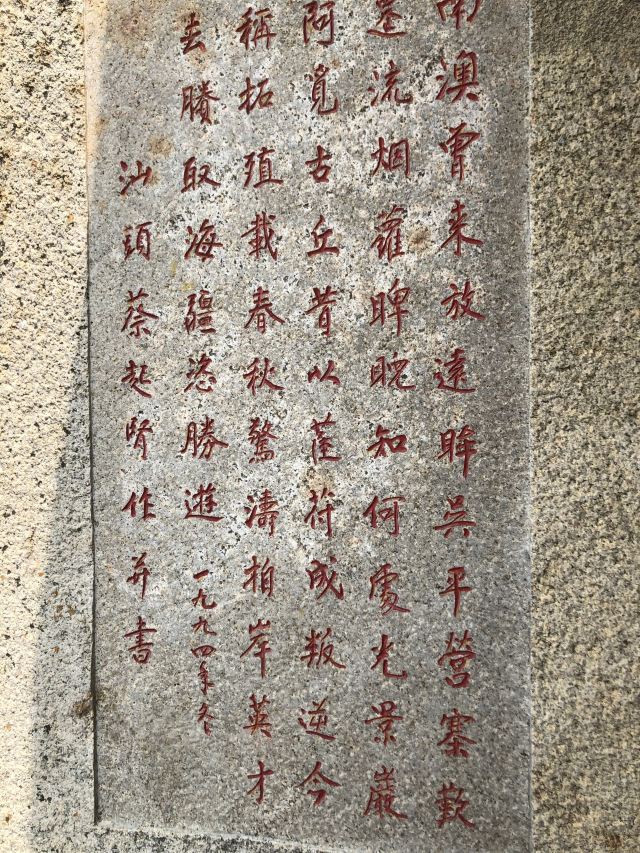 南澳曾来放遠眸吳平營寨歎
流烟蘿睥睨知何處光景巖
阿覓古丘昔以萑苻成叛逆今
稱拓殖載春秋驚濤拍岸英才
去賸取海疆恣勝遊 一九九四年冬
汕頭蔡起賢作并書